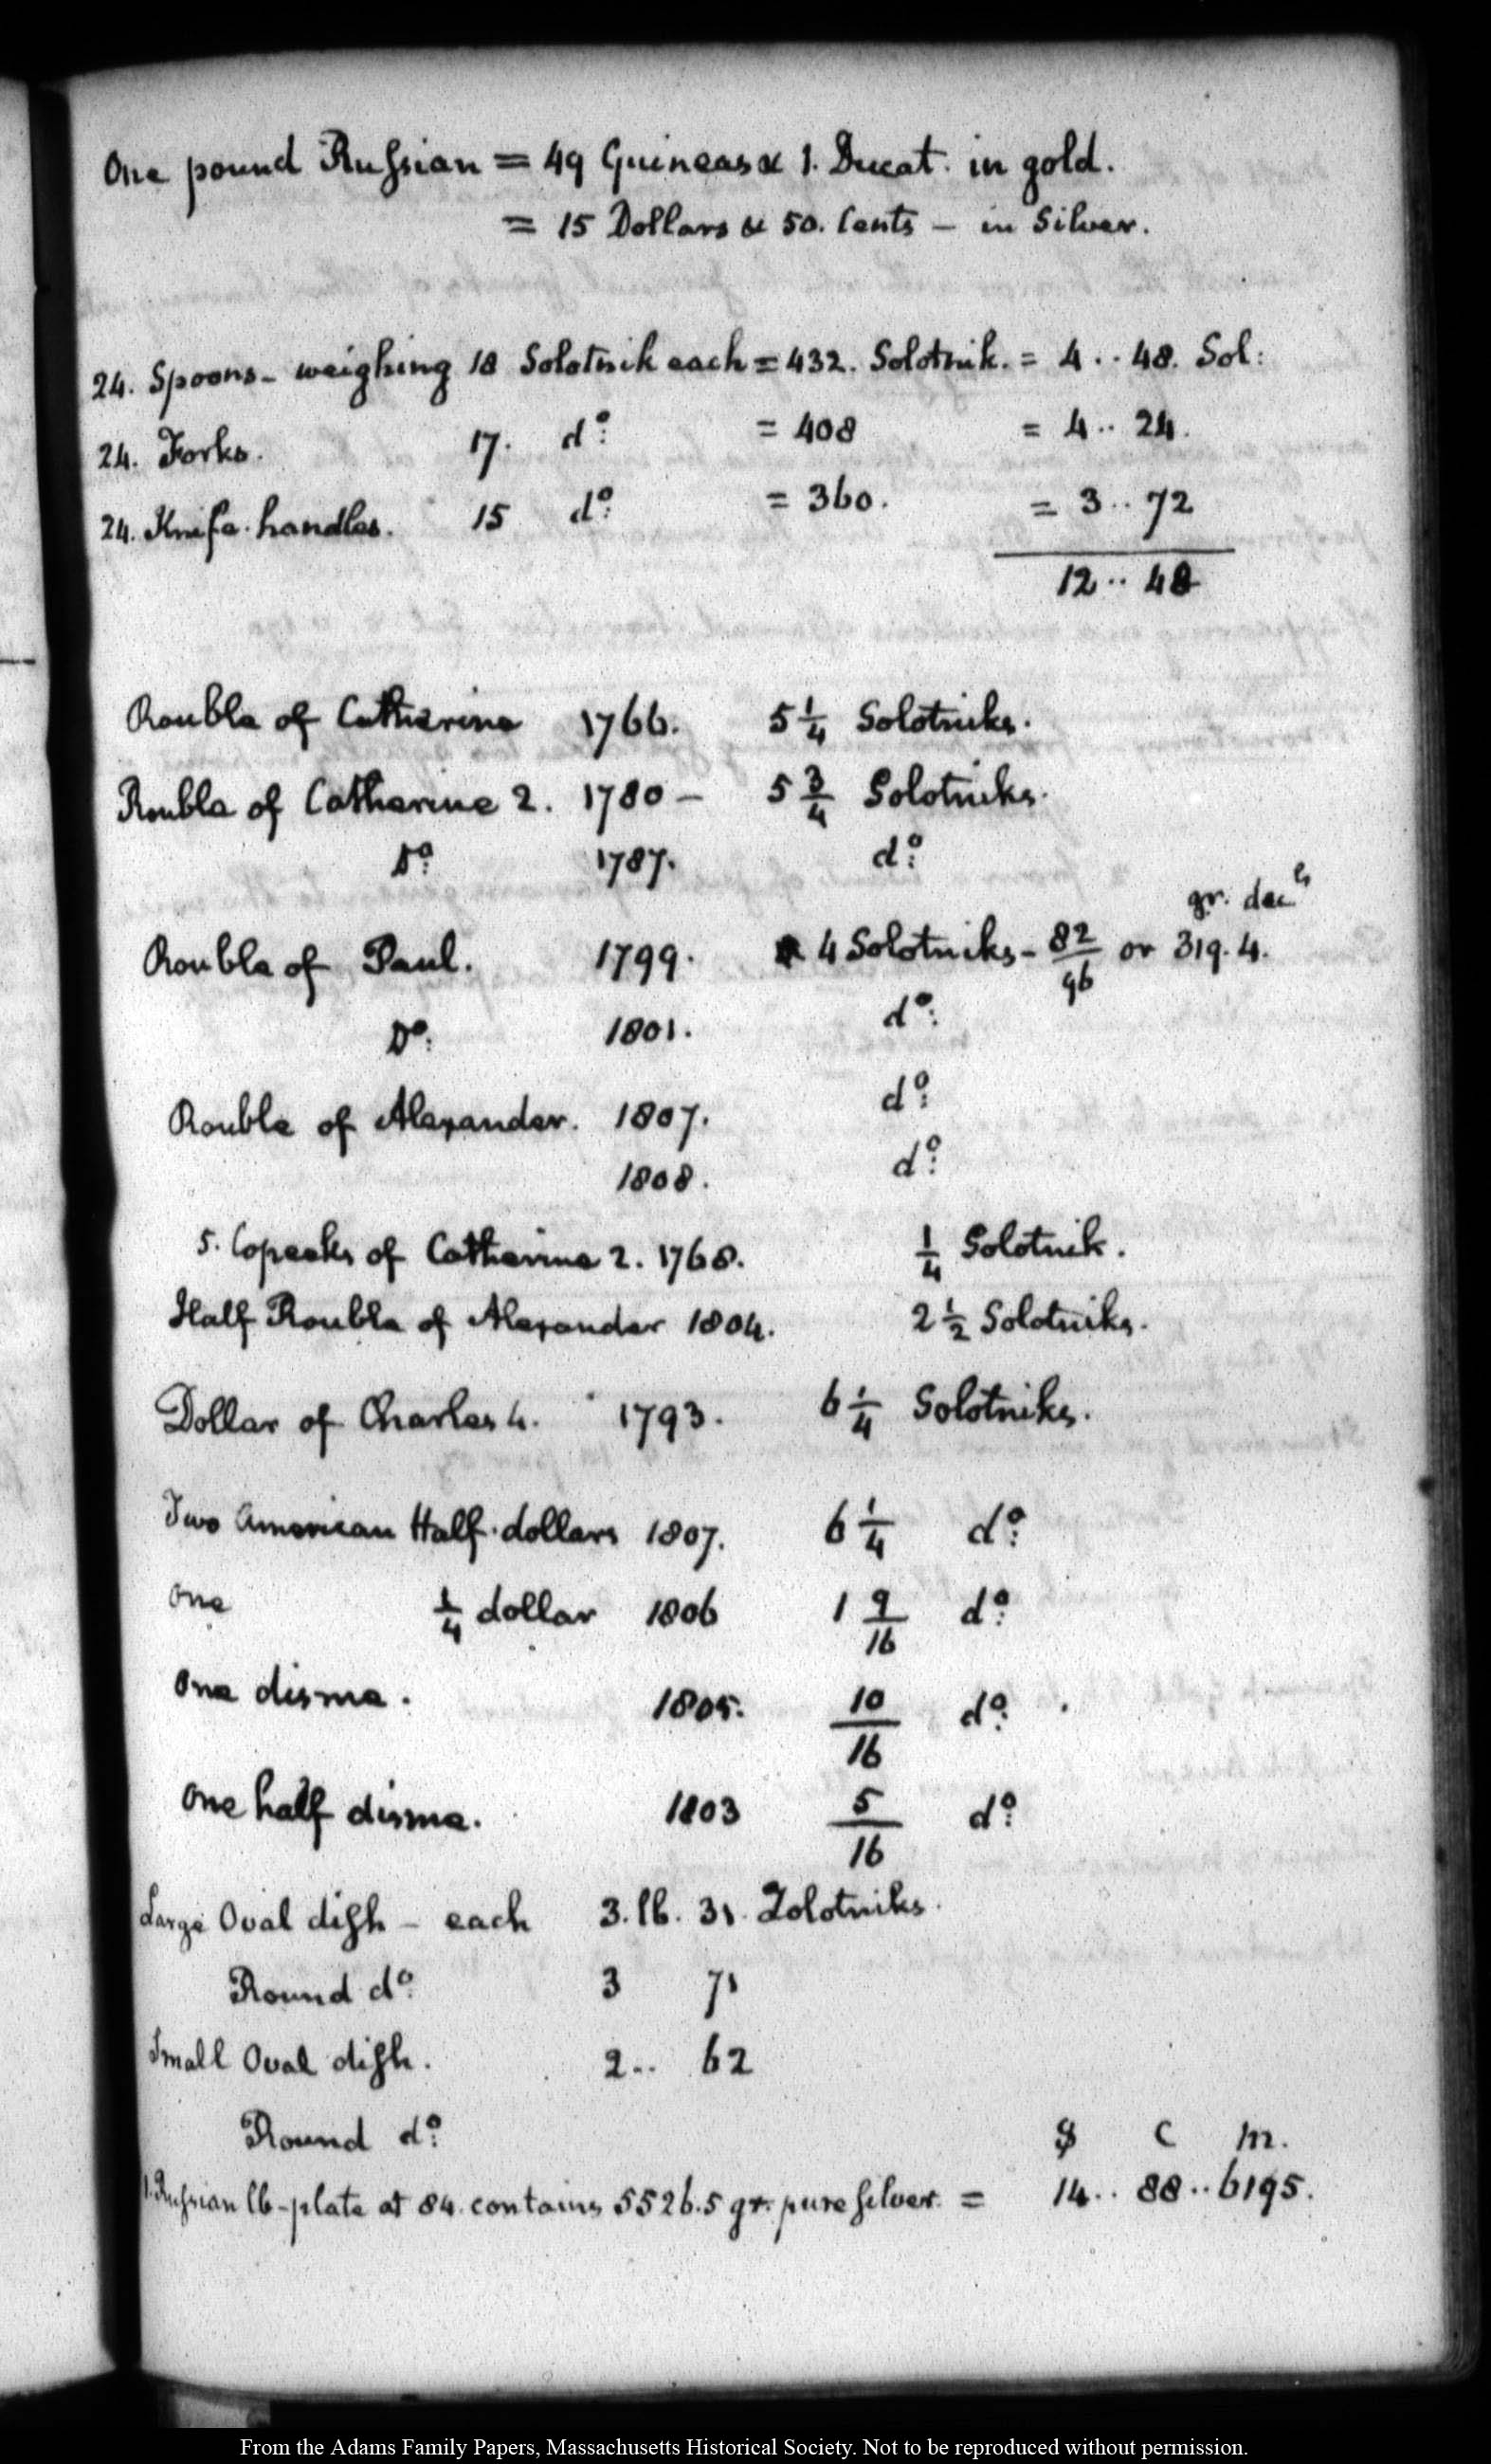 One pound Russian = 49 Guineas & 1. Ducat. in gold.
= 15 Dollars & 50. Cents – in Silver.
24. Spoons – weighing 18 Solotnik each = 432. Solotnik. = 4 .. 48. Sol:
24. Forks. 17. do: = 408 = 4 .. 24.
24. Knife-handles. 15 do: = 360. = 3 .. 72
12 .. 48
Rouble of Catherine 1766. 5 1/4 Solotniks.
Rouble of Catherine 2. 1780 – 5 3/4 Solotniks.
Do: 1787. do:
gr. decls
Rouble of Paul. 1799. 4 Solotniks – 82/96 or 319.4.
Do: 1801. do:
Rouble of Alexander. 1807. do:
1808. do:
5. Copecks of Catherine 2. 1768. 1/4 Solotnik.
Half Rouble of Alexander 1804. 2 1/2 Solotniks.
Dollar of Charles 4. 1793. 6 1/4 Solotniks.
Two American Half-dollars 1807. 6 1/4 do:
One 1/4 dollar 1806 1 9/16 do:
One disme. 1805. 10/16 do:
One half disme. 1803 5/16 do:
Large Oval dish – each 3. lb. 31. Zolotniks.
Round do: 3 71
Small Oval dish. 2 .. 62
Round do:
$ C m.
1. Russian lb – plate at 84. contains 5526.5 gr. pure silver. = 14 .. 88 .. 6195.
From the Adams Family Papers, Massachusetts Historical Society. Not to be reproduced without permission.